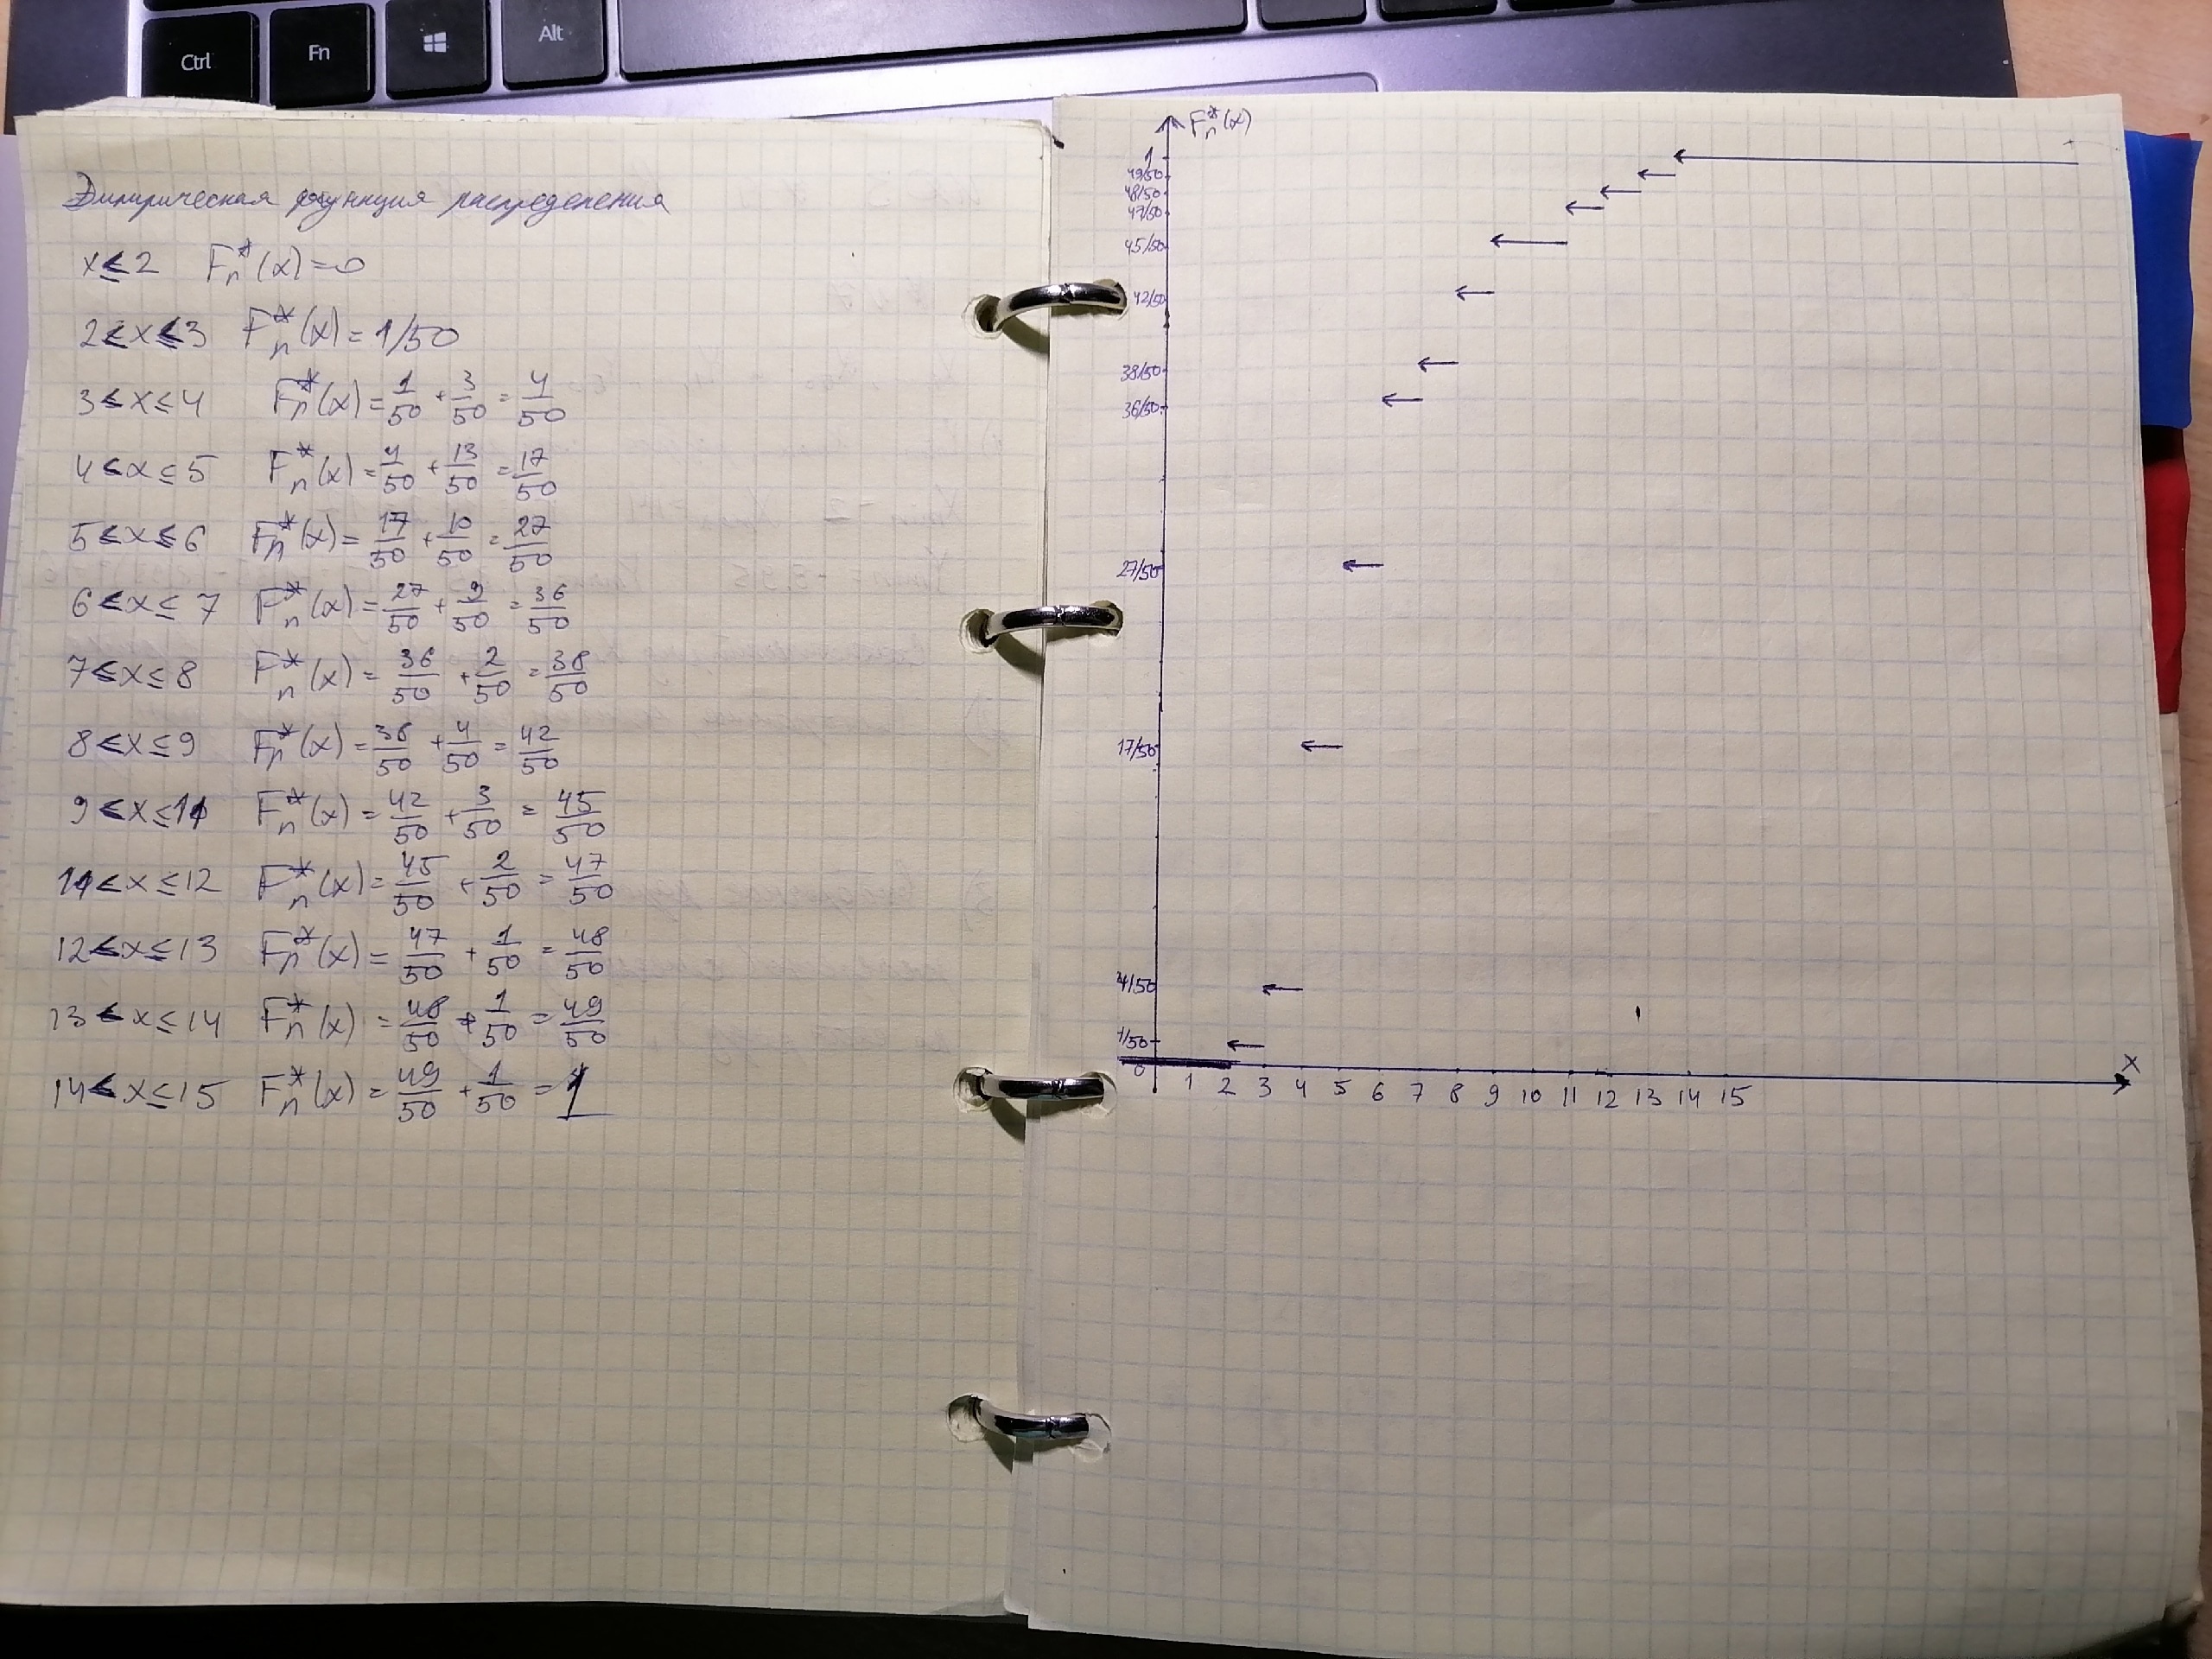 Ctrl Fn Alt
Эмпирическая функция распределения
x ≤ 2 Fn*(x) = 0
2 < x ≤ 3 Fn*(x) = 1/50
3 < x ≤ 4 Fn*(x) = 1/50 + 3/50 = 4/50
4 < x ≤ 5 Fn*(x) = 4/50 + 13/50 = 17/50
5 < x ≤ 6 Fn*(x) = 17/50 + 10/50 = 27/50
6 < x ≤ 7 Fn*(x) = 27/50 + 9/50 = 36/50
7 < x ≤ 8 Fn*(x) = 36/50 + 2/50 = 38/50
8 < x ≤ 9 Fn*(x) = 38/50 + 4/50 = 42/50
9 < x ≤ 11 Fn*(x) = 42/50 + 3/50 = 45/50
11 < x ≤ 12 Fn*(x) = 45/50 + 2/50 = 47/50
12 < x ≤ 13 Fn*(x) = 47/50 + 1/50 = 48/50
13 < x ≤ 14 Fn*(x) = 48/50 + 1/50 = 49/50
14 < x ≤ 15 Fn*(x) = 49/50 + 1/50 = 1
Fn*(x)
1
49/50
48/50
47/50
45/50
42/50
38/50
36/50
27/50
17/50
4/50
1/50
x
0 1 2 3 4 5 6 7 8 9 10 11 12 13 14 15